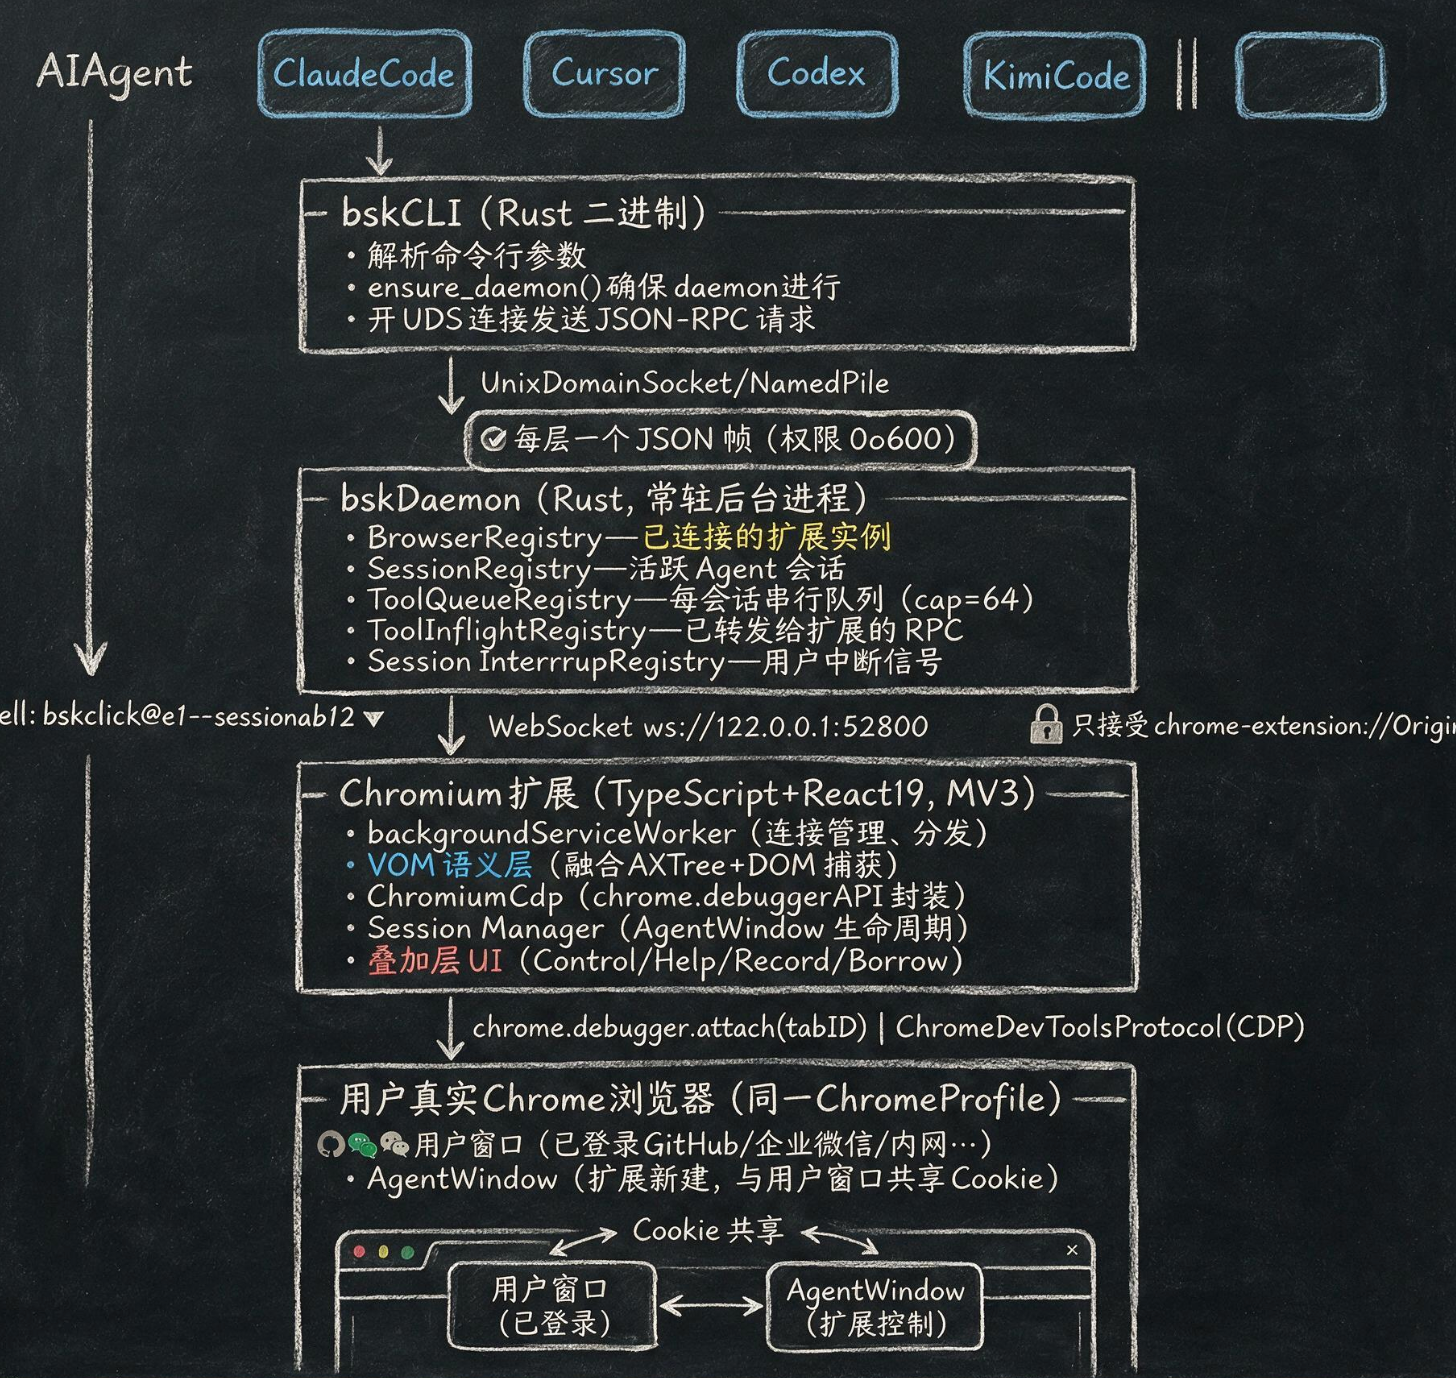 AIAgent
ClaudeCode
Cursor
Codex
KimiCode
bskCLI（Rust 二进制）
• 解析命令行参数
• ensure_daemon()确保 daemon进行
• 开 UDS 连接发送 JSON-RPC 请求
UnixDomainSocket/NamedPile
每层一个 JSON 帧（权限 0o600）
bskDaemon（Rust, 常驻后台进程）
• BrowserRegistry—已连接的扩展实例
• SessionRegistry—活跃 Agent 会话
• ToolQueueRegistry—每会话串行队列（cap=64）
• ToolInflightRegistry—已转发给扩展的 RPC
• Session InterrrupRegistry—用户中断信号
ell: bskclick@e1--sessionab12
WebSocket ws://122.0.0.1:52800
只接受 chrome-extension://Origin
Chromium 扩展（TypeScript+React19, MV3）
• backgroundServiceWorker（连接管理、分发）
• VOM 语义层（融合 AXTree+DOM 捕获）
• ChromiumCdp（chrome.debuggerAPI 封装）
• Session Manager（AgentWindow 生命周期）
• 叠加层 UI（Control/Help/Record/Borrow）
chrome.debugger.attach(tabID) | ChromeDevToolsProtocol(CDP)
用户真实Chrome浏览器（同一ChromeProfile）
用户窗口（已登录GitHub/企业微信/内网…）
• AgentWindow（扩展新建, 与用户窗口共享 Cookie）
Cookie 共享
用户窗口
（已登录）
AgentWindow
（扩展控制）